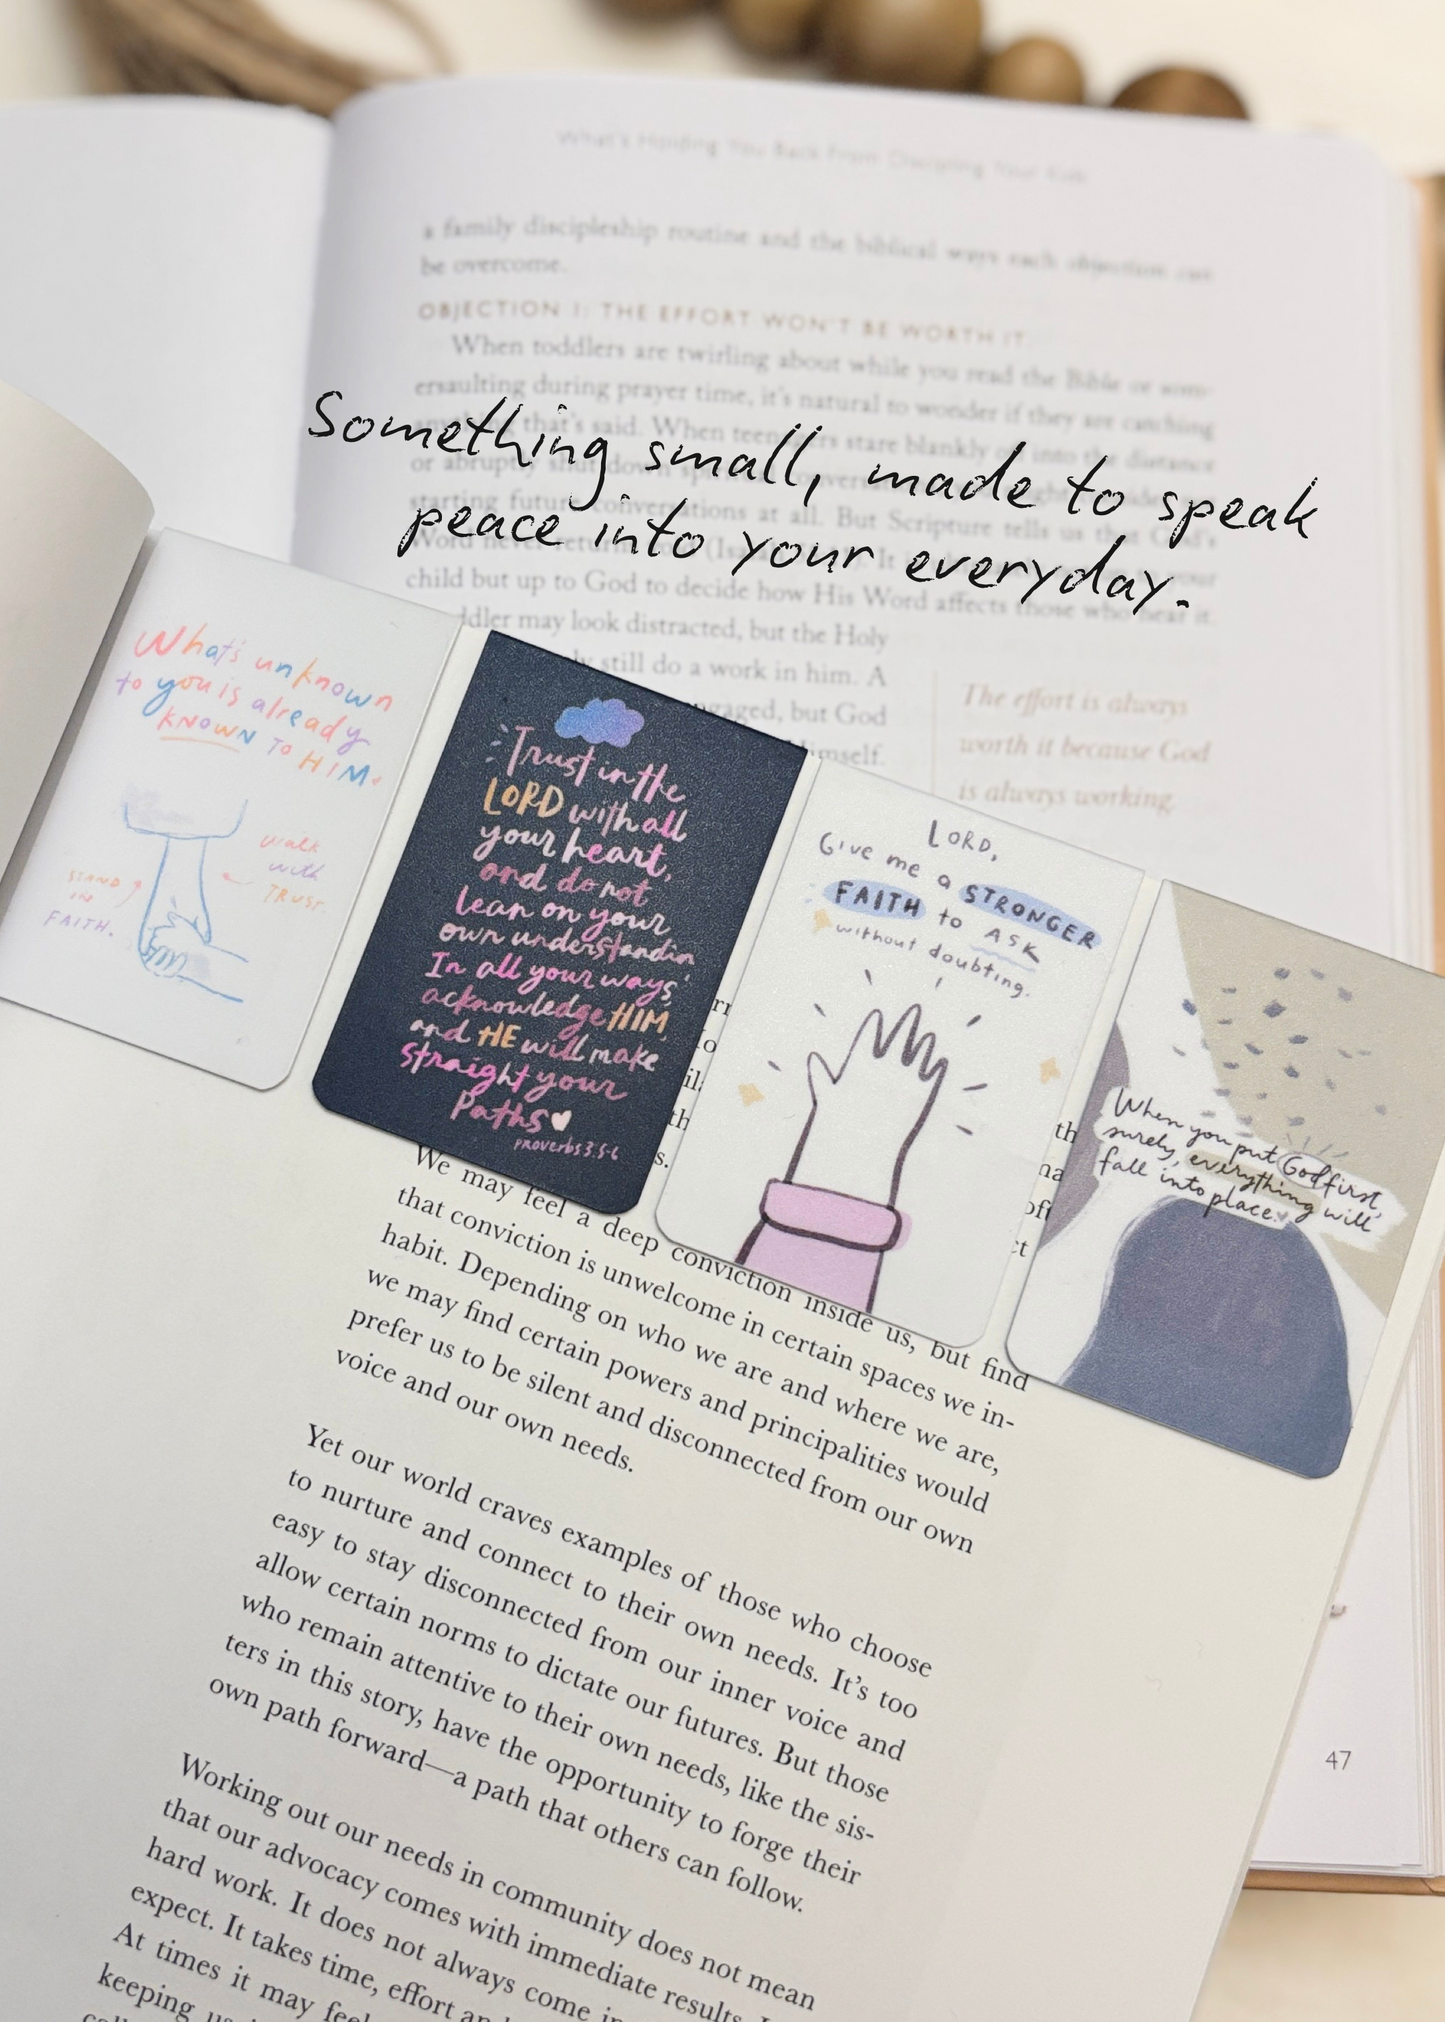 What's Holding You Back From Discipling Your Kids
a family discipleship routine and the biblical ways each objection can
be overcome.
OBJECTION 1: THE EFFORT WON'T BE WORTH IT
When toddlers are twirling about while you read the Bible or som-
ersaulting during prayer time, it's natural to wonder if they are catching
that's said. When teenagers stare blankly off into the distance
or abruptly shut down
starting future conversations at all. But Scripture tells us that God's
Word never
child but up to God to decide how His Word affects those who hear it.
Something small, made to speak
peace into your everyday.
ddler may look distracted, but the Holy
still do a work in him. A
ngaged, but God
Himself.
The effort is always
worth it because God
is always working.
What's unknown
to you is already
KNOWN TO HIM
STAND
IN
FAITH.
walk
with
TRUST.
Trust in the
LORD with all
your heart,
and do not
lean on your
own understandin
In all your ways
acknowledge HIM,
and HE will make
straight your
Paths
proverbs 3:5-6
LORD,
Give me a STRONGER
FAITH to ASK
without doubting.
When you put God first,
surely, everything will
fall into place.
We may feel a deep conviction inside us, but find
that conviction is unwelcome in certain spaces we in-
habit. Depending on who we are and where we are,
we may find certain powers and principalities would
prefer us to be silent and disconnected from our own
voice and our own needs.
Yet our world craves examples of those who choose
to nurture and connect to their own needs. It's too
easy to stay disconnected from our inner voice and
allow certain norms to dictate our futures. But those
who remain attentive to their own needs, like the sis-
ters in this story, have the opportunity to forge their
own path forward—a path that others can follow.
Working out our needs in community does not mean
that our advocacy comes with immediate results.
hard work. It does not always come
expect. It takes time, effort
At times it may feel
keeping
47